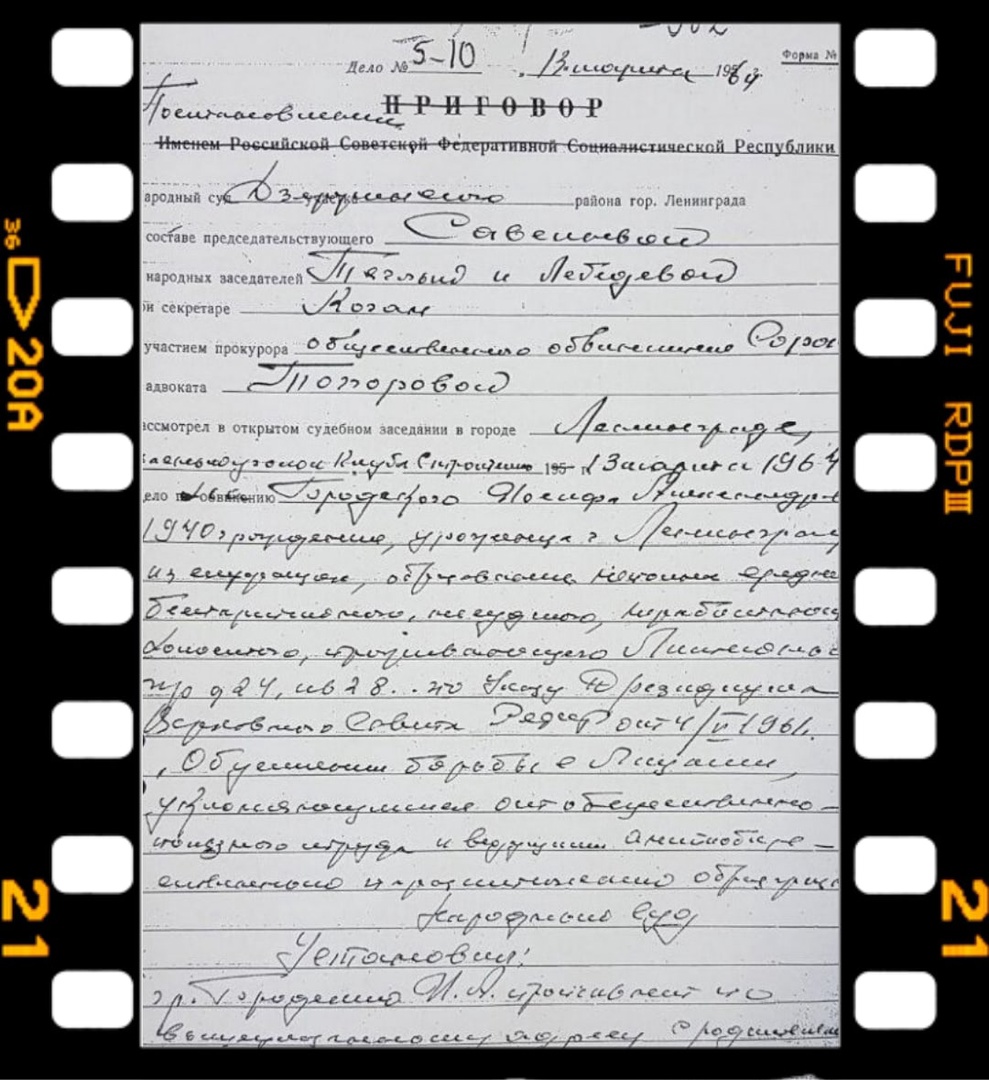 Форма №
Дело № 5-10 13 марта 1964
Постановление
ПРИГОВОР
Именем Российской Советской Федеративной Социалистической Республики
ародный суд Дзержинского района гор. Ленинграда
составе председательствующего Савельевой
народных заседателей Тяглый и Лебедевой
и секретаре Коган
участием прокурора общественного обвинителя Соро
адвоката Топоровой
ассмотрел в открытом судебном заседании в городе Ленинграде,
Клуба Строителей 195 г. 13 марта 1964
ело по обвинению Иосифа Александров
1940 рождения, уроженца г. Ленинград
из служащих, образование
беспартийного, несудимого,
холостого, проживающего
пр д 24, кв 28.. по Указу Президиума
Верховного Совета РСФСР от 4/V 1961.
"Об усилении борьбы с лицами,
уклоняющимися от общественно-
полезного труда и ведущими антиобще-
ственный паразитический образ
Народный суд
Установил:
гр. И.А. проживает по
вышеуказанному адресу с родителями
FUJI RDPIII
36
20A
21
21